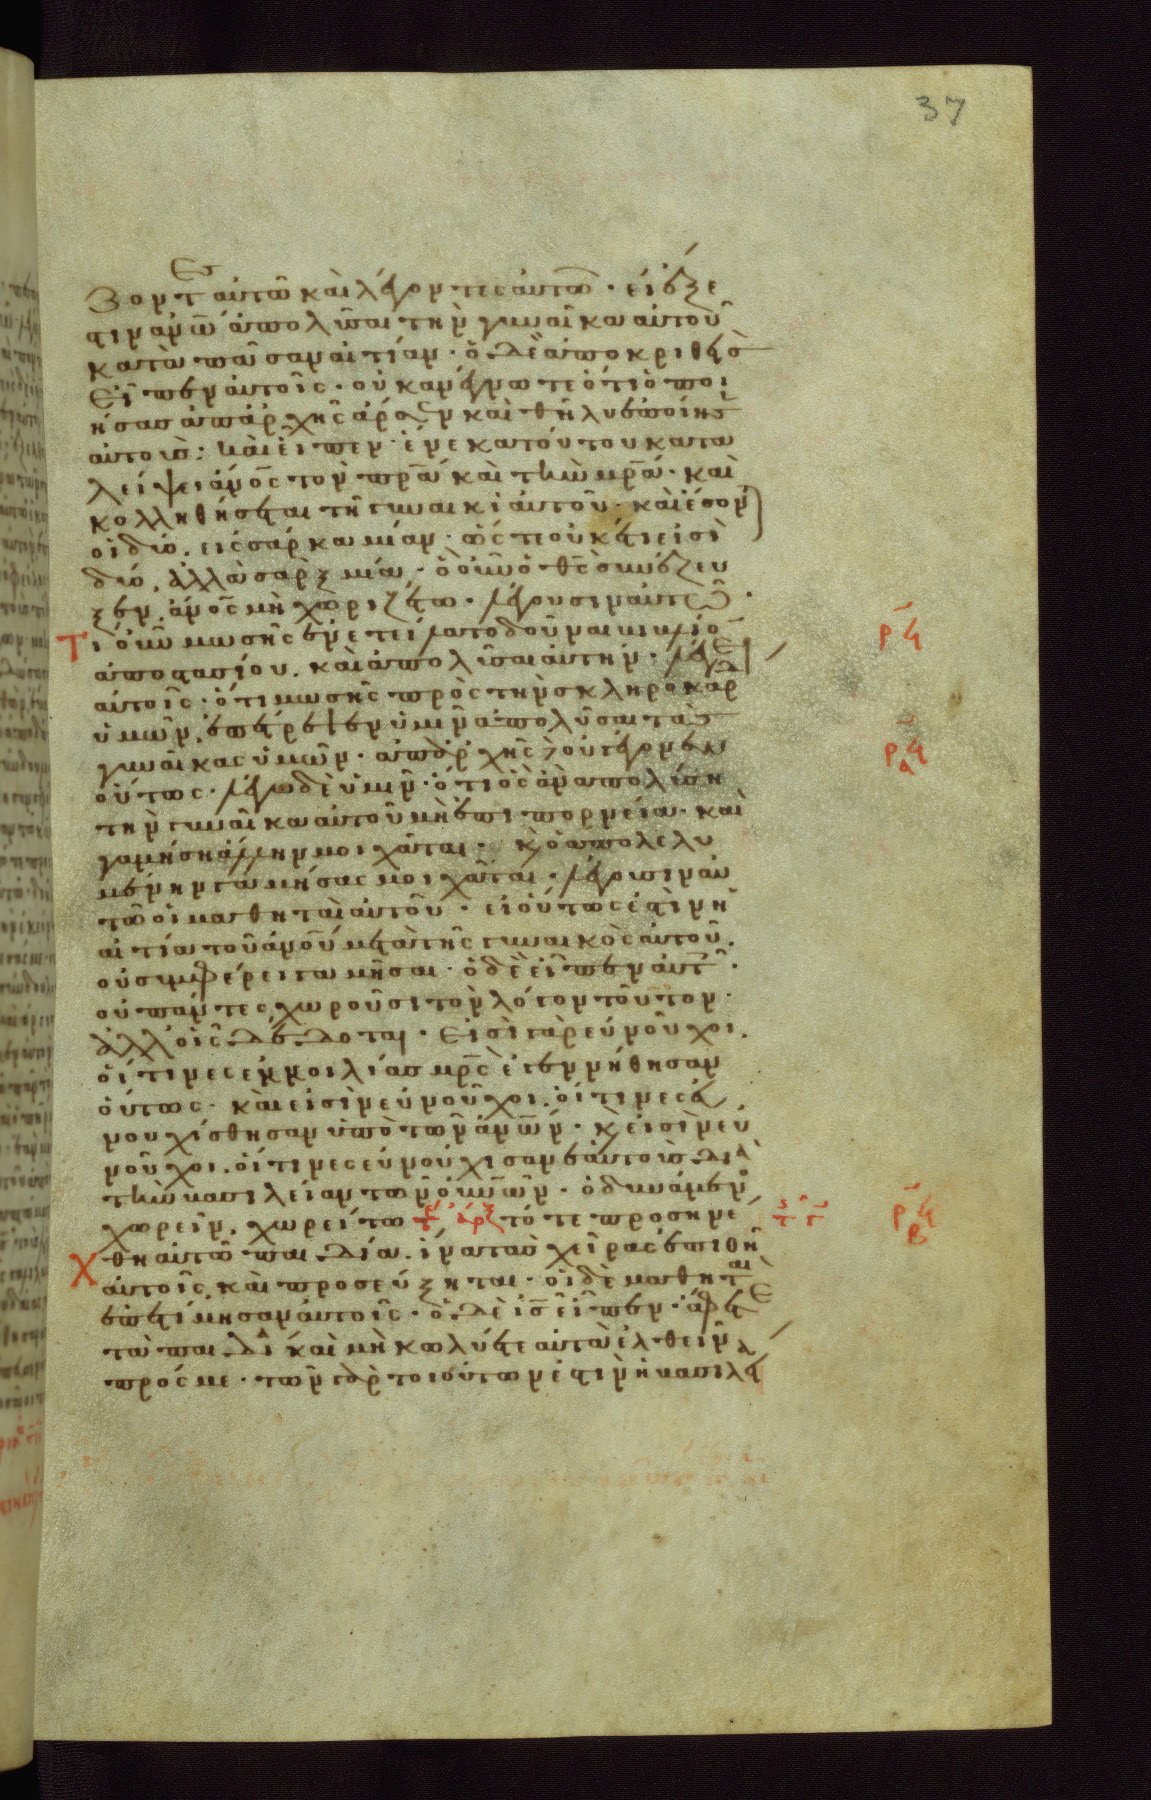 37
ζοντες αὐτῶ καὶ λέγοντες αὐτῶ · εἰ ἔξε
στιν ἀνῶ ἀπολῦσαι τὴν γυναῖκα αὐτοῦ
κατὰ πᾶσαν αἰτίαν · ὁ δὲ ἀποκριθεὶς
εἶπεν αὐτοῖς · οὐκ ἀνέγνωτε ὅτι ὁ ποι
ήσας ἀπαρχῆς ἄρσεν καὶ θῆλυ ἐποίησεν
αὐτούς : καὶ εἶπεν · ἕνεκα τούτου κατα
λείψει ἄνος τὸν πρα καὶ τὴν μρα · καὶ
κολληθήσεται τῆ γυναικὶ αὐτοῦ · καὶ ἔσον
οἱ δύο . εἰς σάρκα μίαν · ὥστε οὐκέτι εἰσὶ
δύο . ἀλλὰ σὰρξ μία · ὃ οὖν ὁ θς συνέζευ
ξεν . ἄνος μὴ χωριζέτω · λέγουσιν αὐτῶ .
Τί οὖν μωσῆς ἐνετείλατο δοῦναι βιβλίο
ἀποστασίου . καὶ ἀπολῦσαι αὐτήν · λέγει
αὐτοῖς · ὅτι μωσῆς πρὸς τὴν σκληροκαρδ
ὑμῶν . ἐπέτρεψεν ὑμῖν ἀπολῦσαι τὰς
γυναῖκας ὑμῶν · ἀπαρχῆς δὲ οὐ γέγονεν
οὕτως · λέγω δὲ ὑμῖν · ὅτι ὃς ἂν ἀπολύση
τὴν γυναῖκα αὐτοῦ μὴ ἐπι πορνεία · καὶ
γαμήση ἄλλην μοιχᾶται · κ ὁ ἀπολελυ
μένην γαμήσας μοιχᾶται · λέγουσιν αὐ
τῶ οἱ μαθηταὶ αὐτοῦ · εἰ οὕτως ἐστὶν ἡ
αἰτία τοῦ ἀνου μετὰ τῆς γυναικὸς αὐτοῦ .
οὐ συμφέρει γαμῆσαι · ὁ δὲ εἶπεν αὐτ .
οὐ πάντες χωροῦσι τὸν λόγον τοῦτον ·
ἀλλ οἷς δέδοται · εἰσὶ γὰρ εὐνοῦχοι .
οἵτινες ἐκ κοιλίας μρς ἐγεννήθησαν
οὕτως · καὶ εἰσὶν εὐνοῦχοι . οἵτινες εὐ
νουχίσθησαν ὑπὸ τῶν ἀνων · κ εἰσὶν εὐ
νοῦχοι . οἵτινες εὐνούχισαν ἑαυτοὺς διὰ
τὴν βασιλείαν τῶν οὐνων · ὁ δυνάμεν
χωρεῖν . χωρείτω τε αρχ τότε προσηνέ
Χθη αὐτῶ παιδία . ἵνα τὰς χεῖρας ἐπιθῆ
αὐτοῖς καὶ προσεύξηται · οἱ δὲ μαθηται
ἐπετίμησαν αὐτοῖς · ὁ δὲ ις εἶπεν · ἄφετε
τὰ παιδία καὶ μὴ κωλύετε αὐτὰ ἐλθεῖν
πρός με · τῶν γὰρ τοιούτων ἐστὶν ἡ βασιλεί